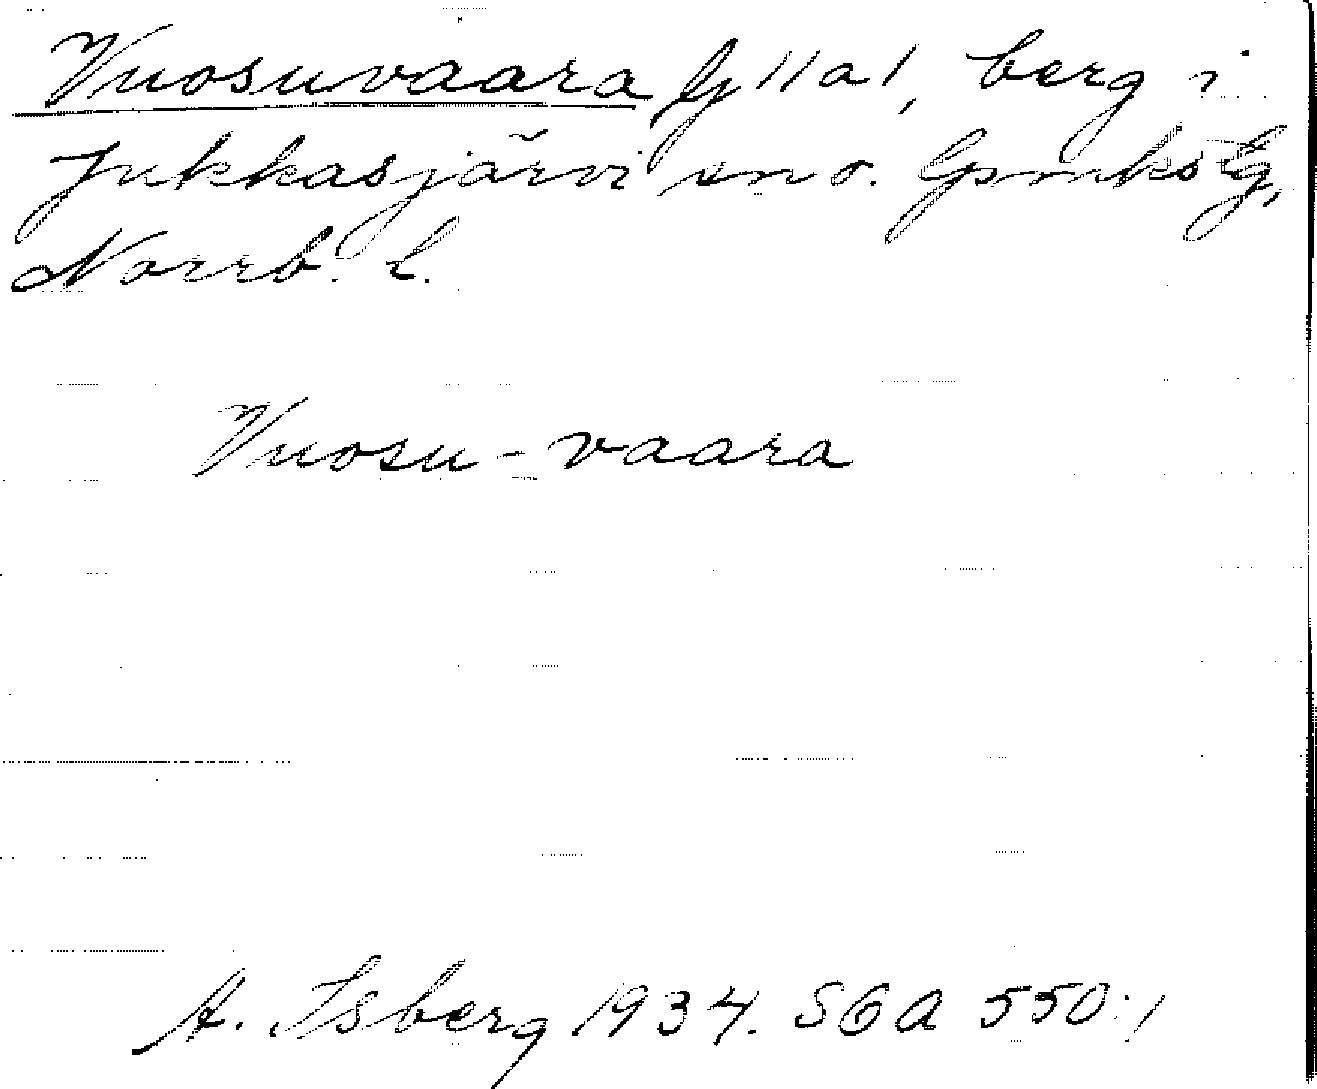 Vuosuvaara fj 11 a 1, berg i
Jukkasjärvi sn o. lpmkslg,
Norrb. l.
Vuosu-vaara
A. Isberg 1934. SGA 550:1